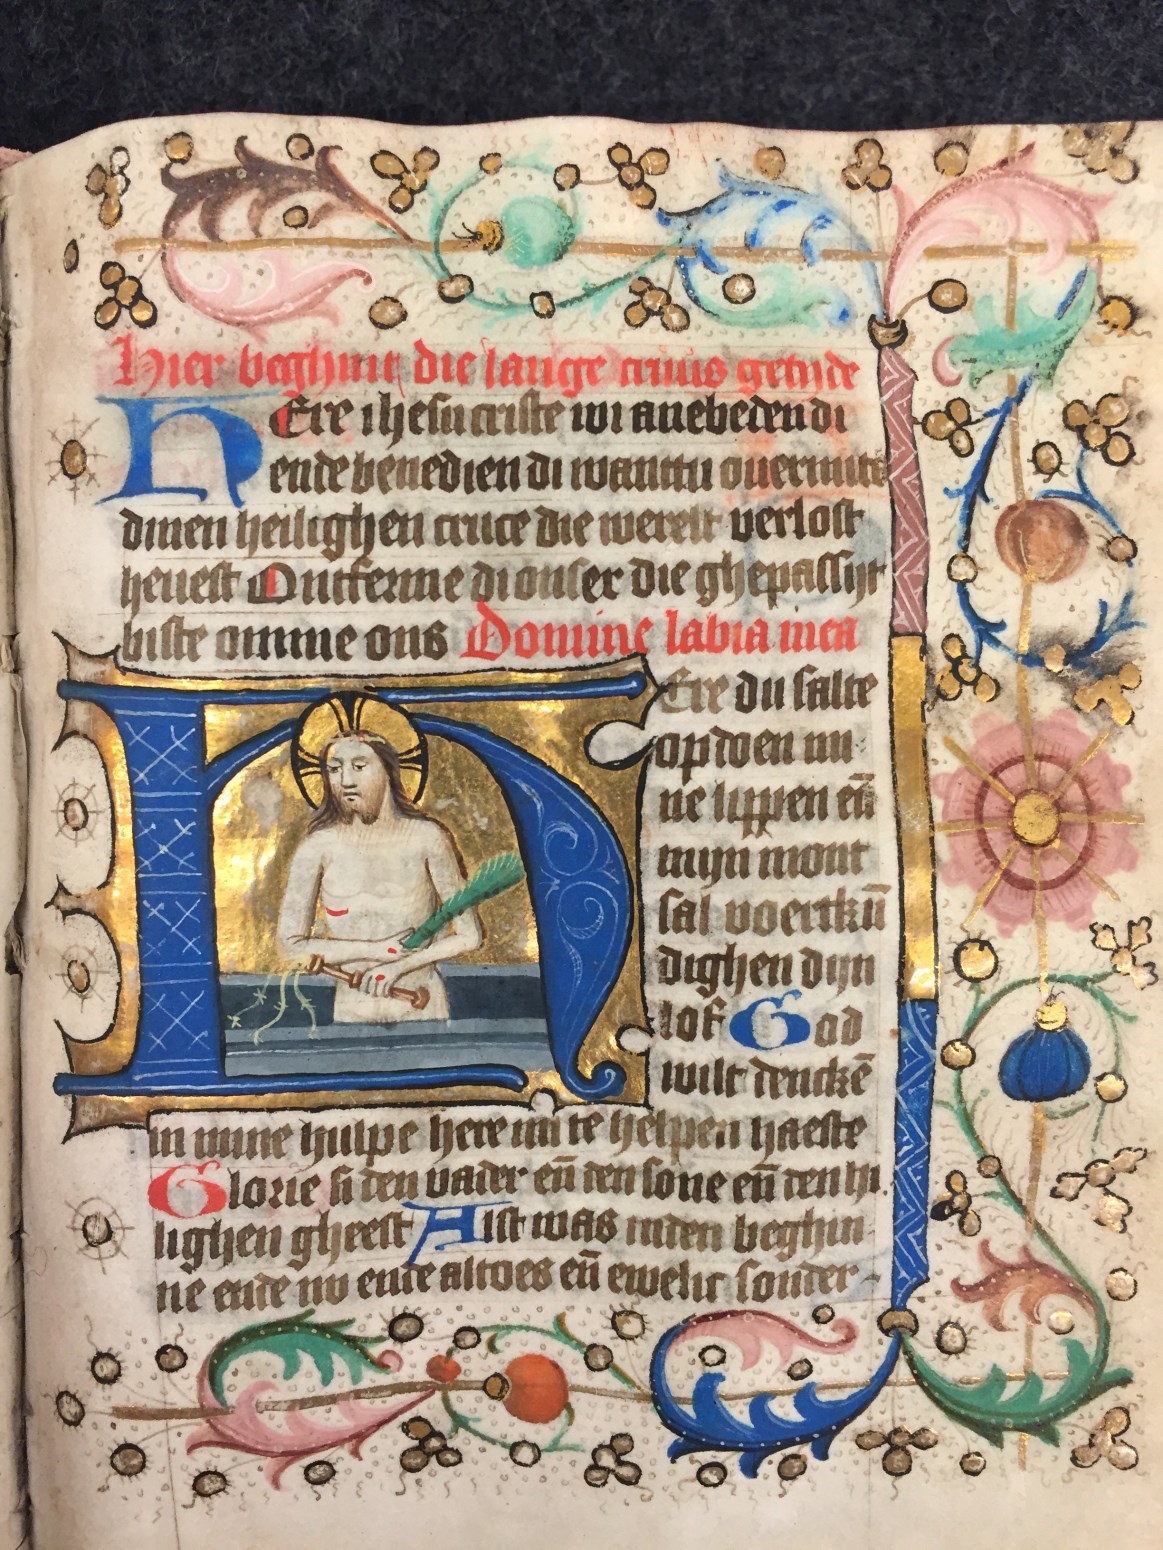 Hier beghint die lange cruus getyde
HEre ihesu criste wi anebeden di
ende benedien di want tu ouermits
dinen heilighen cruce die werelt verlost
heuest Ontferme di onser die ghepassijt
biste omme ons Domine labia mea
HEre du salte
opdoen mi
ne lippen en̄
mijn mont
sal voertkū
dighen dijn
lof God
wilt denckē
in mine hulpe here mi te helpen haeste
Glorie si den vader en̄ den sone en̄ den hi
lighen gheest Alst was inden beghin
ne ende nv ende altoes en̄ ewelic sonder